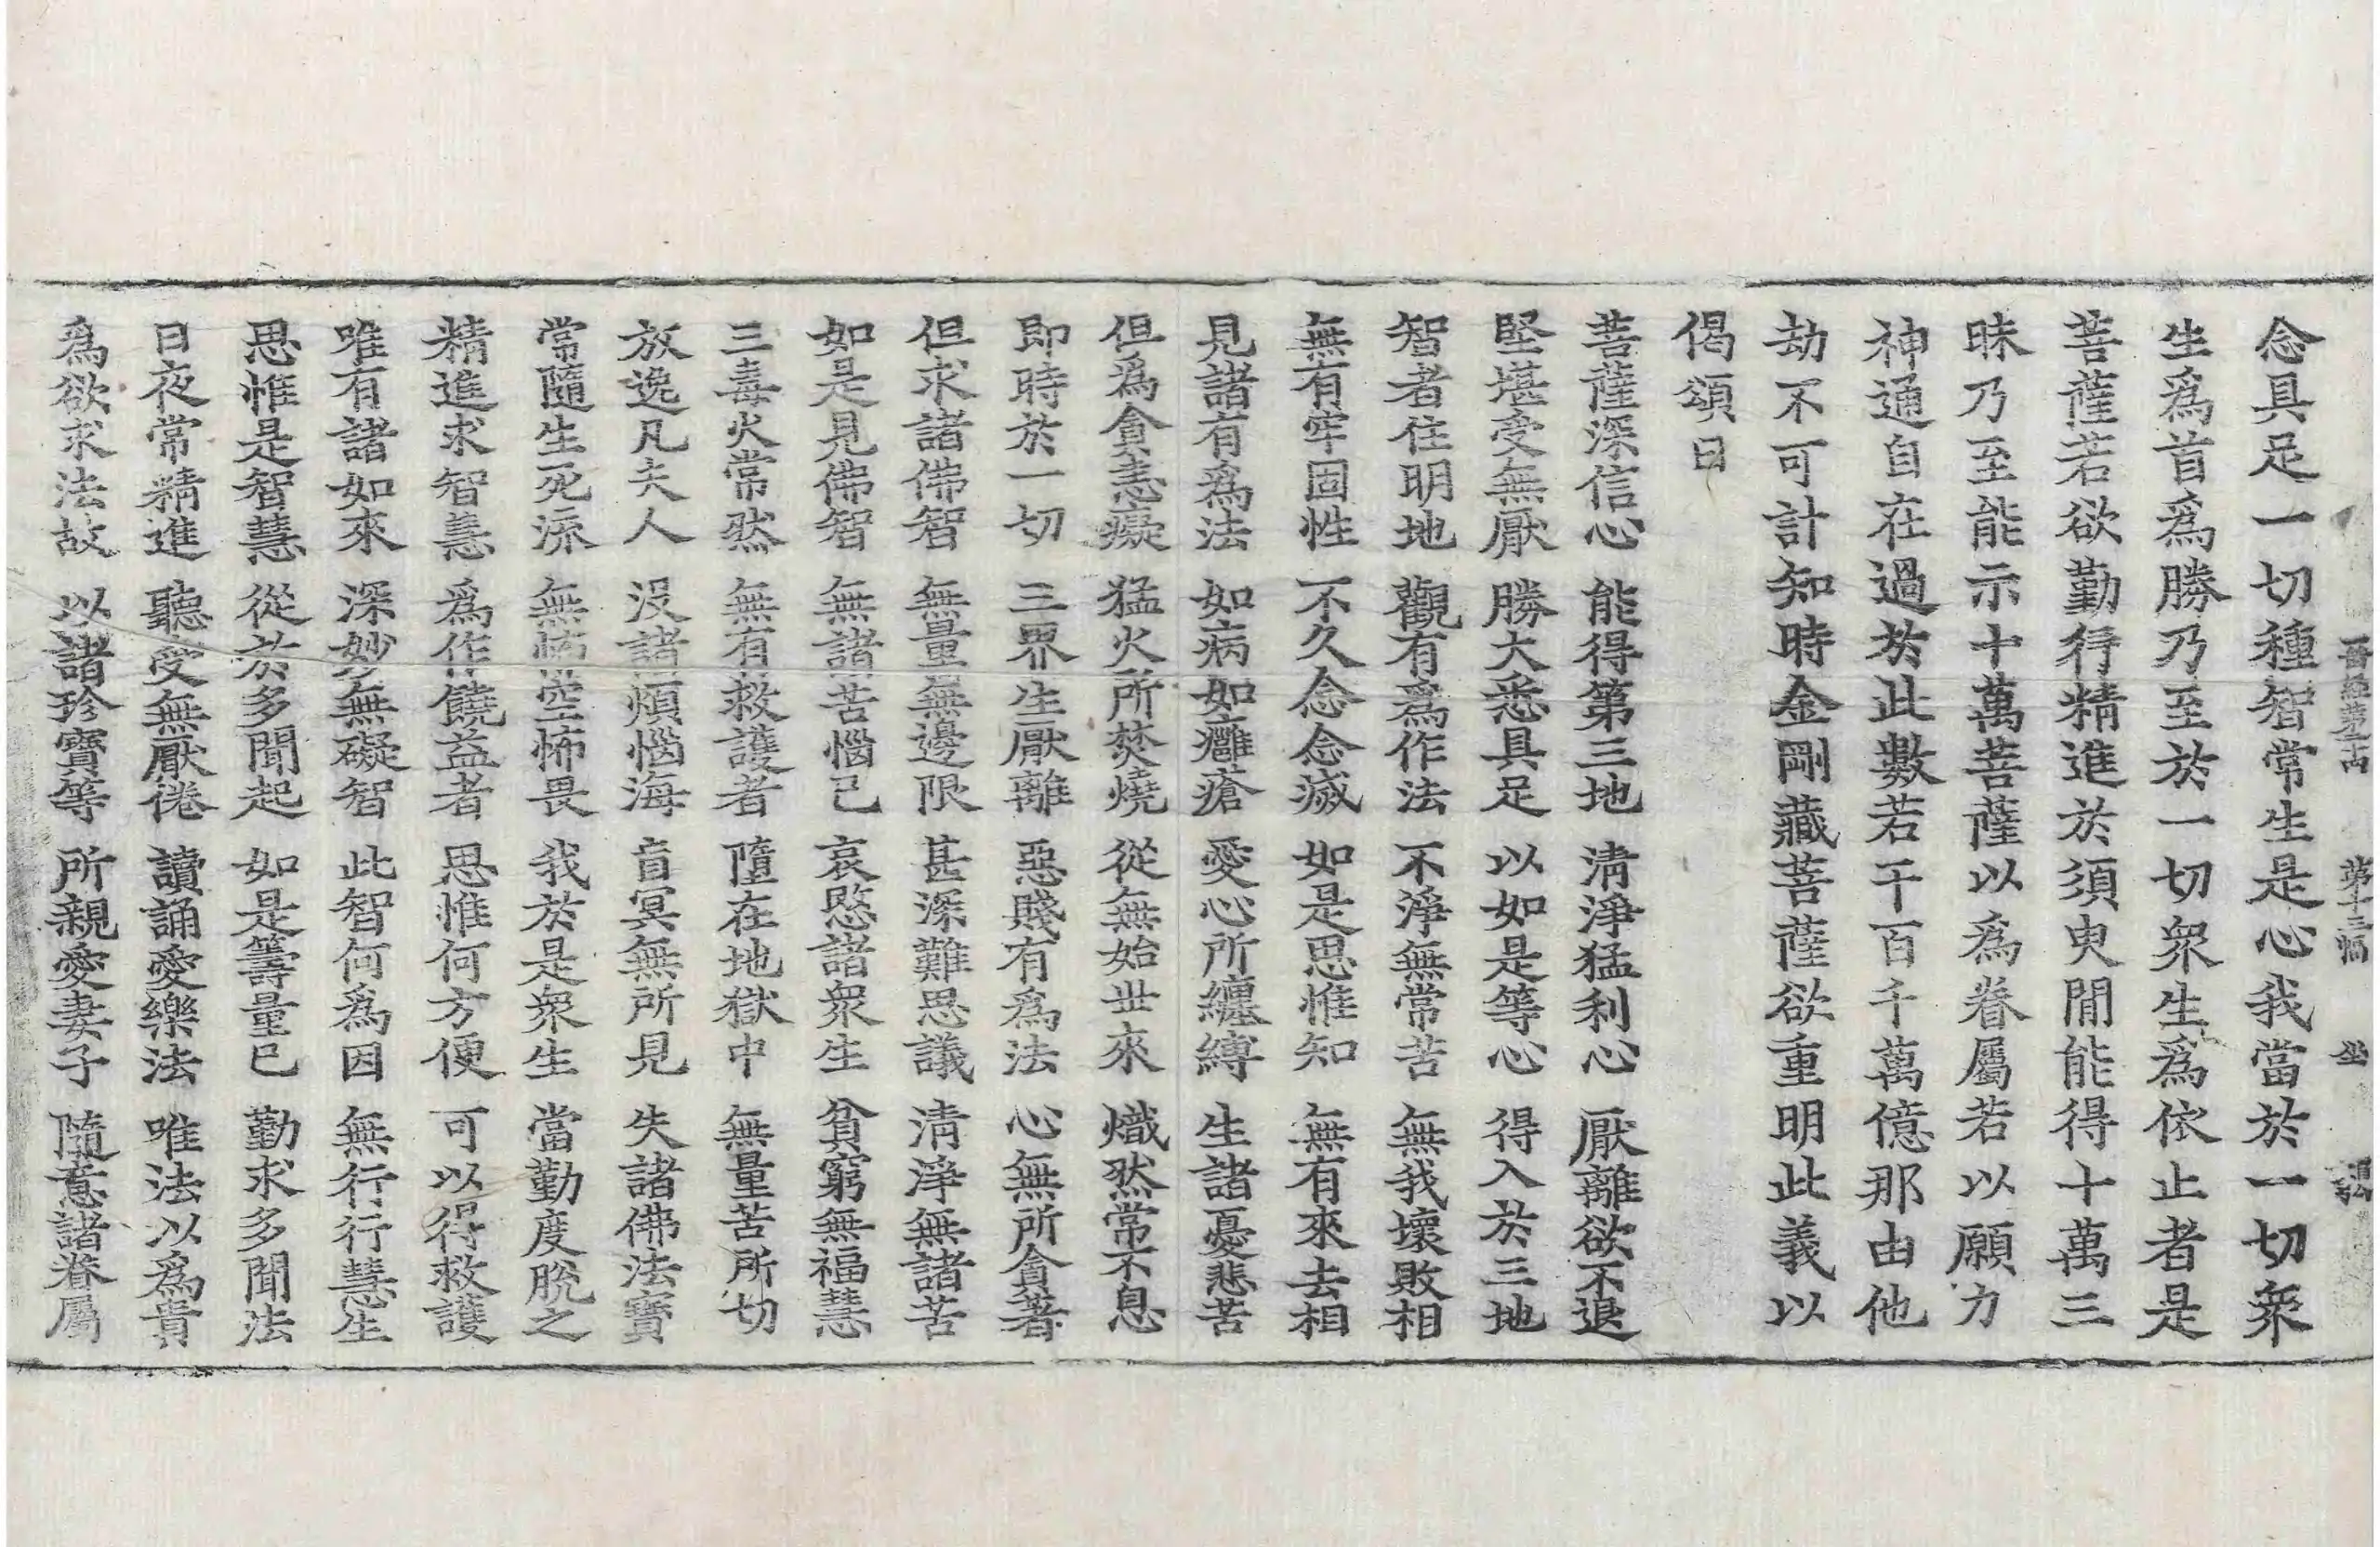 晉經第二十四 第十三幅 坐
念具足一切種智常生是心我當於一切衆
生爲首爲勝乃至於一切衆生爲依止者是
菩薩若欲勤行精進於須臾閒能得十萬三
昧乃至能示十萬菩薩以爲眷屬若以願力
神通自在過於此數若干百千萬億那由他
劫不可計知時金剛藏菩薩欲重明此義以
偈頌曰
菩薩深信心 能得第三地 淸淨猛利心 厭離欲不退
堅堪受無厭 勝大悉具足 以如是等心 得入於三地
智者住明地 觀有爲作法 不淨無常苦 無我壞敗相
無有牢固性 不久念念滅 如是思惟知 無有來去相
見諸有爲法 如病如癰瘡 愛心所纏縛 生諸憂悲苦
但爲貪恚癡 猛火所焚燒 從無始世來 熾然常不息
即時於一切 三界生厭離 惡賤有爲法 心無所貪著
但求諸佛智 無量無邊限 甚深難思議 淸淨無諸苦
如是見佛智 無諸苦惱已 哀愍諸衆生 貧窮無福慧
三毒火常然 無有救護者 墮在地獄中 無量苦所切
放逸凡夫人 沒諸煩惱海 盲冥無所見 失諸佛法寶
常隨生死流 無怖空怖畏 我於是衆生 當勤度脫之
精進求智慧 爲作饒益者 思惟何方便 可以得救護
唯有諸如來 深妙無礙智 此智何爲因 無行行慧生
思惟是智慧 從於多聞起 如是籌量已 勤求多聞法
日夜常精進 聽受無厭倦 讀誦愛樂法 唯法以爲貴
爲欲求法故 以諸珍寶等 所親愛妻子 隨意諸眷屬